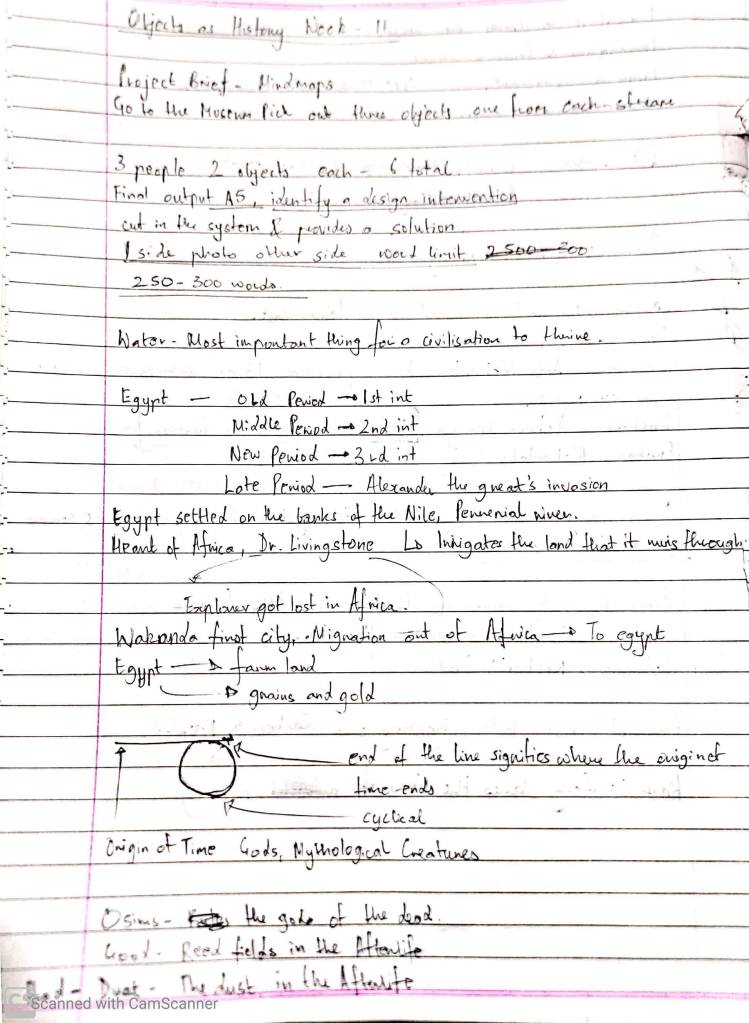 Objects as History Week - 11
Project Brief - Mindmaps
Go to the Museum Pick out three objects one from each stream
3 people 2 objects each - 6 total
Final output A5, identify a design intervention
cut in the system & provides a solution
1 side photo other side word limit 2500-300
250-300 words.
Water - Most important thing for a civilisation to thrive.
Egypt — Old Period → 1st int
Middle Period → 2nd int
New Period → 3rd int
Late Period — Alexander the great's invasion
Egypt settled on the banks of the Nile, Perrenial river.
Heart of Africa, Dr. Livingstone ↳ Irrigates the land that it runs through.
Explorer got lost in Africa.
Wakanda first city, Migration out of Africa → To egypt
Egypt → farm land
→ grains and gold
end of the line signifies where the origin of
time ends
cyclical
Origin of Time Gods, Mythological Creatures
Osiris - the gods of the dead.
Good - Reed fields in the Afterlife
Bad - Duat - The dust in the Afterlife
Scanned with CamScanner